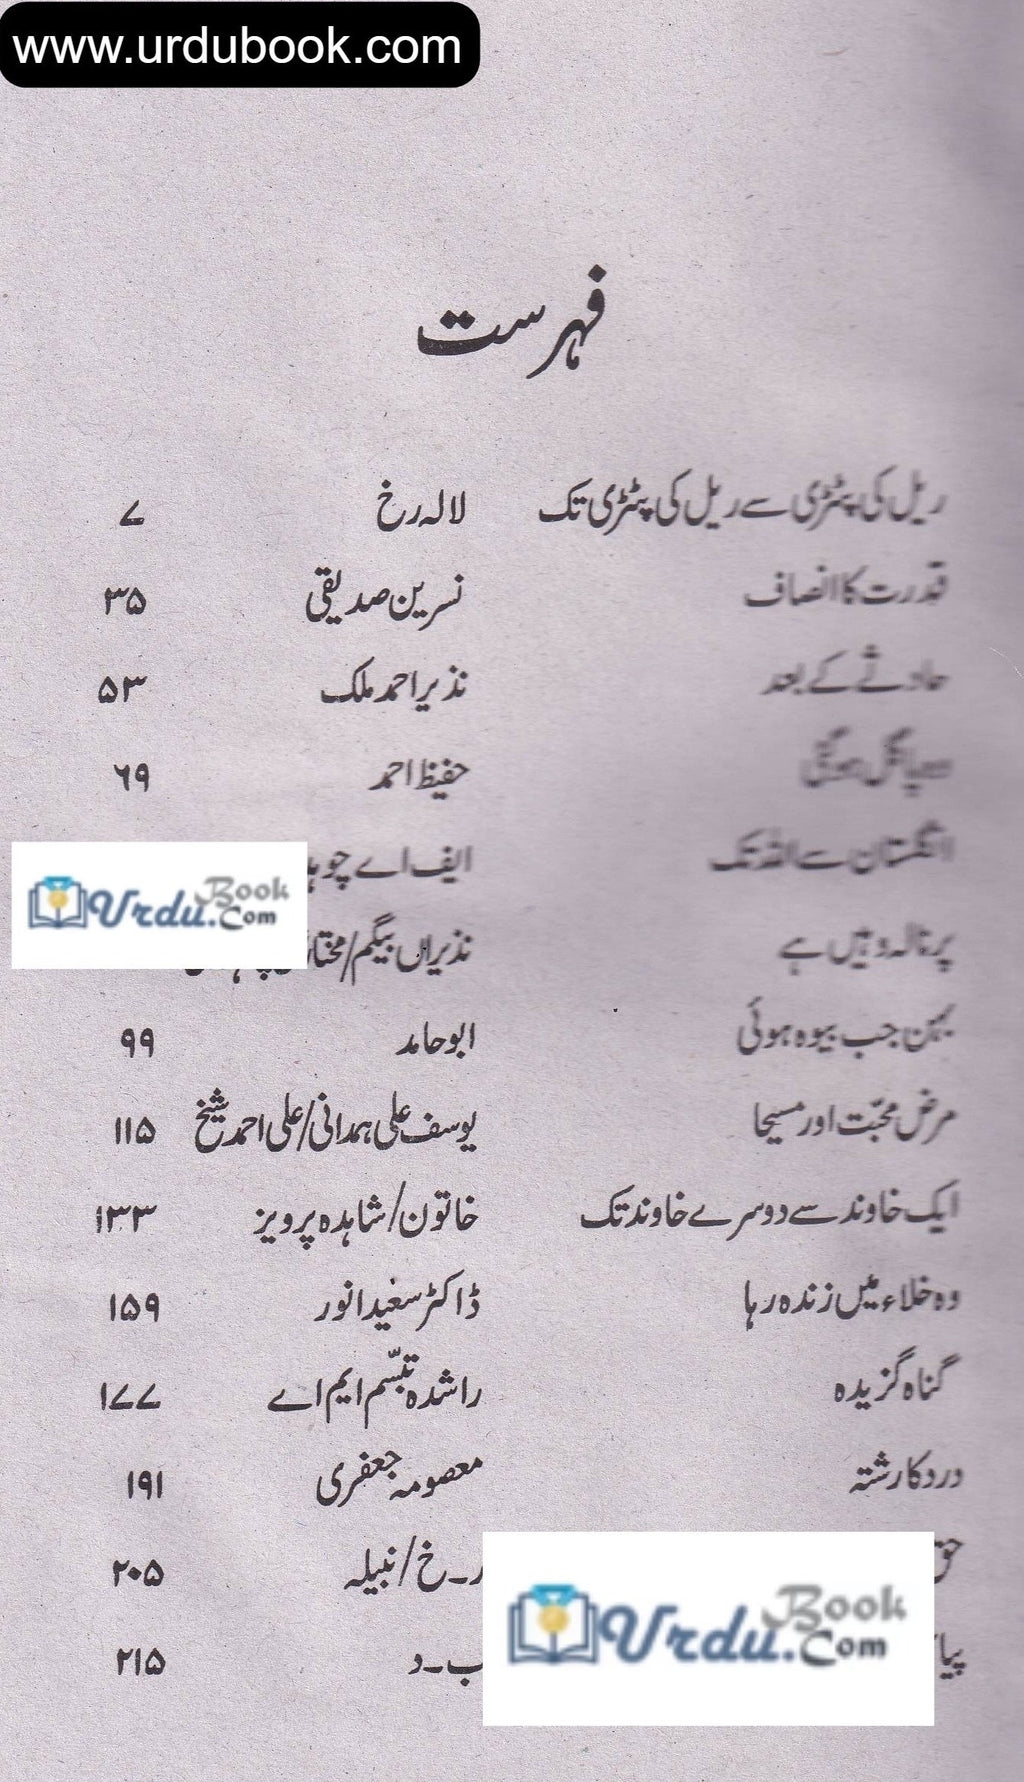 www.urdubook.com
فہرست
ریل کی پٹڑی سے ریل کی پٹڑی تک لالہ رخ ۷
قدرت کا انصاف نسرین صدیقی ۳۵
حادثے کے بعد نذیر احمد ملک ۵۳
وہ پاگل ہو گئی حفیظ احمد ۶۹
انگلستان سے اللہ تک ایف اے
Urdu Book .Com
پرنالہ وہیں ہے نذیراں بیگم/
بہن جب بیوہ ہوئی ابو حامد ۹۹
مرض محبّت اور مسیحا یوسف علی ہمدانی/علی احمد شیخ ۱۱۵
ایک خاوند سے دوسرے خاوند تک خاتون/شاہدہ پرویز ۱۳۳
وہ خلاء میں زندہ رہا ڈاکٹر سعید انور ۱۵۹
گناہ گزیدہ راشدہ تبسّم ایم اے ۱۷۷
درد کا رشتہ معصومہ جعفری ۱۹۱
حق ر۔خ/نبیلہ ۲۰۵
Urdu Book .Com
ب۔د ۲۱۵